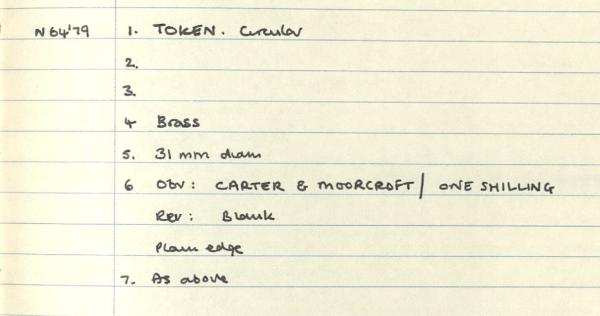 N64'79 1. TOKEN. Circular
2.
3.
4 Brass
5. 31 mm diam
6 Obv: CARTER & MOORCROFT / ONE SHILLING
Rev: Blank
Plain edge
7. As above